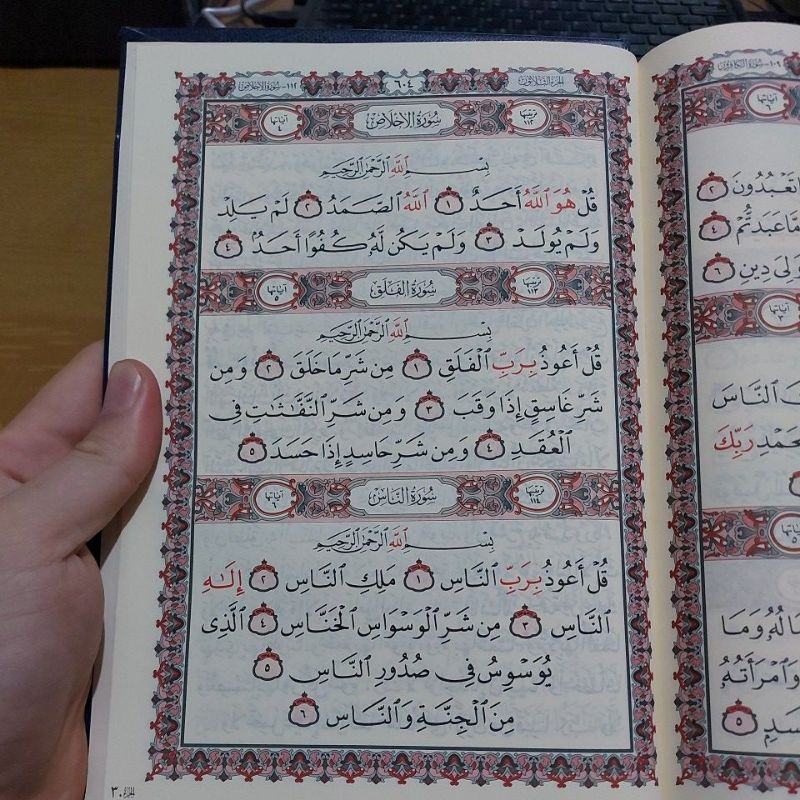 ١٠٩-سورة الكافرون
آياتها ٦
نَعۡبُدُونَ ٢
مَّا عَبَدتُّمۡ ٤
وَلِىَ دِينِ ٦
آياتها ٣
ٱلنَّاسَ
رَبِّكَ
آياتها ٥
مَالُهُۥ وَمَا
وَٱمۡرَأَتُهُۥ
٥
الجزء الثلاثون
٦٠٤
١١٢-سورة الإخلاص
ترتيبها ١١٢ سُورَةُ الإِخْلَاصِ آياتها ٤
بِسۡمِ ٱللَّهِ ٱلرَّحۡمَٰنِ ٱلرَّحِيمِ
قُلۡ هُوَ ٱللَّهُ أَحَدٌ ١ ٱللَّهُ ٱلصَّمَدُ ٢ لَمۡ يَلِدۡ
وَلَمۡ يُولَدۡ ٣ وَلَمۡ يَكُن لَّهُۥ كُفُوًا أَحَدٌۢ ٤
ترتيبها ١١٣ سُورَةُ الفَلَقِ آياتها ٥
بِسۡمِ ٱللَّهِ ٱلرَّحۡمَٰنِ ٱلرَّحِيمِ
قُلۡ أَعُوذُ بِرَبِّ ٱلۡفَلَقِ ١ مِن شَرِّ مَا خَلَقَ ٢ وَمِن
شَرِّ غَاسِقٍ إِذَا وَقَبَ ٣ وَمِن شَرِّ ٱلنَّفَّٰثَٰتِ فِى
ٱلۡعُقَدِ ٤ وَمِن شَرِّ حَاسِدٍ إِذَا حَسَدَ ٥
ترتيبها ١١٤ سُورَةُ النَّاسِ آياتها ٦
بِسۡمِ ٱللَّهِ ٱلرَّحۡمَٰنِ ٱلرَّحِيمِ
قُلۡ أَعُوذُ بِرَبِّ ٱلنَّاسِ ١ مَلِكِ ٱلنَّاسِ ٢ إِلَٰهِ
ٱلنَّاسِ ٣ مِن شَرِّ ٱلۡوَسۡوَاسِ ٱلۡخَنَّاسِ ٤ ٱلَّذِى
يُوَسۡوِسُ فِى صُدُورِ ٱلنَّاسِ ٥
مِنَ ٱلۡجِنَّةِ وَٱلنَّاسِ ٦
الجزء ٣٠